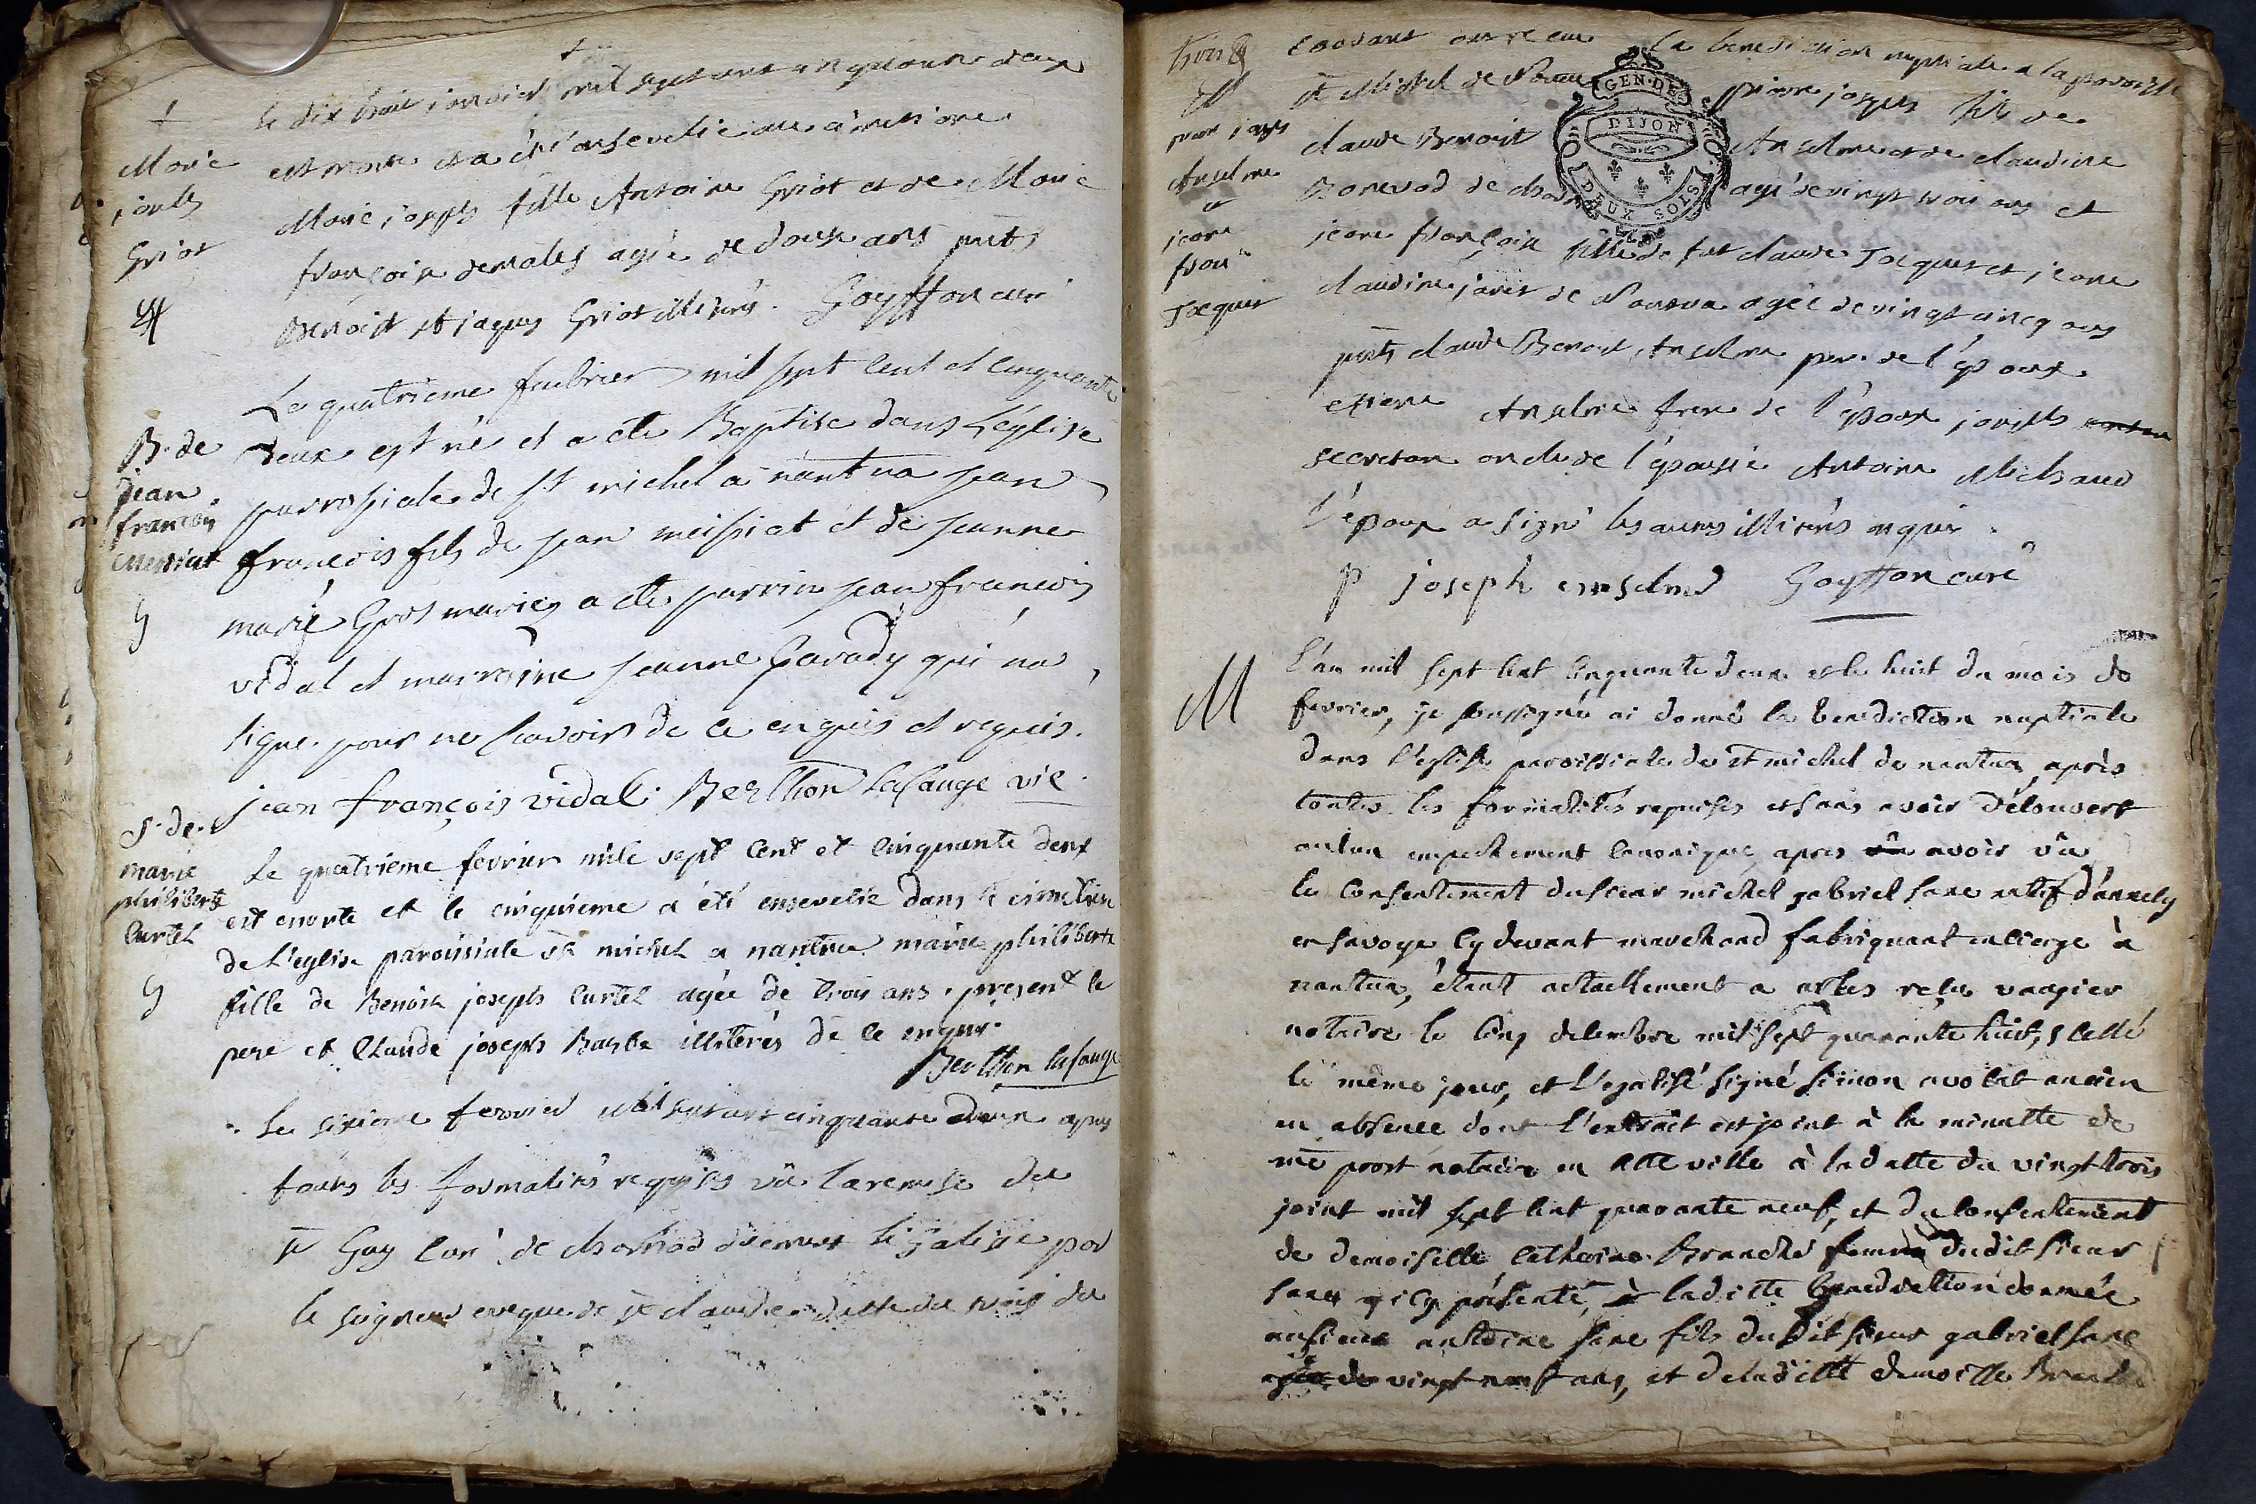 +
Marie
joseph
Griot
Le dix huit janvier mil sept cent cinquante deux
est morte et a été ensevelie au cimetiere
Marie joseph fille Antoine Griot et de Marie
françoise agée de douze ans pnts
Benoist et jaques Griot illiterés. Goyffon curé
B. de
jean
francois
Messiat
G
Le quatrieme feubrier mil sept cent et cinquante
deux est né et a ete Baptise dans L'église
parrossiale de st michel a nantua jean
francois fils de jean meissiat et de jeanne
marie Gros mariés a ete parrin jean francois
vidal et marraine jeanne Savady qui n'a
signe pour ne scavoir de ce enquis et requis.
jean françois vidal. Berthon Lasauge vic.
S. de.
marie
philiberte
Curtel
G
Le quatrieme fevrier mile sept cent et cinquante deux
est morte et le cinquieme a été ensevelie dans le cimetiere
de L'eglise paroissiale st michel a nantua marie philiberte
fille de Benoist joseph Curtel agée de trois ans. present le
pere et Claude joseph Barbe illiterés de ce enquis.
Berthon lasauge
Le sixieme fevrier mil sept cent cinquante deux apres
toutes les formalités requises vû la remise du
sr Guy Curé de chamod duement legalisée par
le seigneur eveque de st claude datte du trois du
M
pierre joseph
Anselme
et
jeane
fran.se
Jaquet
courant ont recu la benediction nuptiale a la paroisse
st Michel de Nantua pierre joseph fils de
claude Benoit Anselme et de claudine
Bonevod de agé de vingt trois ans et
jeane françoise fille de fut claude Jaquet et jeane
claudine javet de Nantua agée de vingt cinq ans
pnts claude Benoit Anselme pere de l'époux
etiene Anselme frere de l'époux joseph
secretan oncle de l'épouse Antoine Michaud
L'époux a signé les autres illiterés enquis.
p joseph enselmed Goyffon curé
M
L'an mil sept cent cinquante deux et le huit du mois de
fevrier, je soussigné ai donné la benediction nuptiale
dans l'eglise paroissiale de st michel de nantua, après
toutes les formalités requises et sans avoir découvert
aucun empechement canonique, apres avoir vû
le consentement du sieur michel gabriel sane natif d'annecy
en savoye cy devant marchand fabriquant en cierge à
nantua, étant actuellement a arles reçu vaugier
notaire le cinq decembre mil sept quarante huit, scellé
le même jour, et legalisé signé simon avocat ancien
en absence dont l'extrait est joint à la minutte de
me prost notaire en cette ville à la datte du vingt trois
joint mil sept cent quarante neuf, et du consentement
de demoiselle catherine Branche femme dudit sieur
sane icy présente, ladite benediction donnée
au sieur antoine sane fils dudit sieur gabriel sane
agée de vingt neuf ans, et de ladite demoiselle Branche
GEN. DE
DIJON
DEUX SOLS